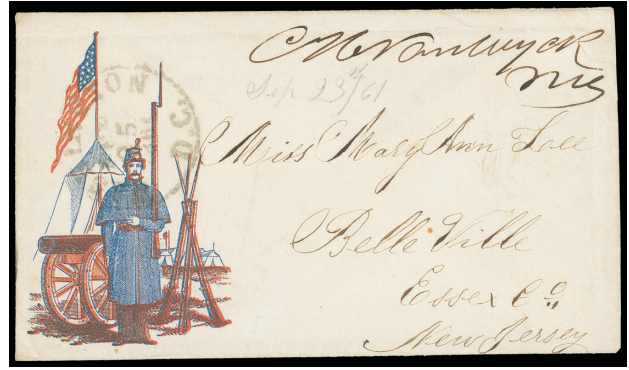 C H Van Wyck
MC
Sep 23rd/61
Miss Mary Ann
Belle Ville
Essex Co.
New Jersey
TON
D.C.